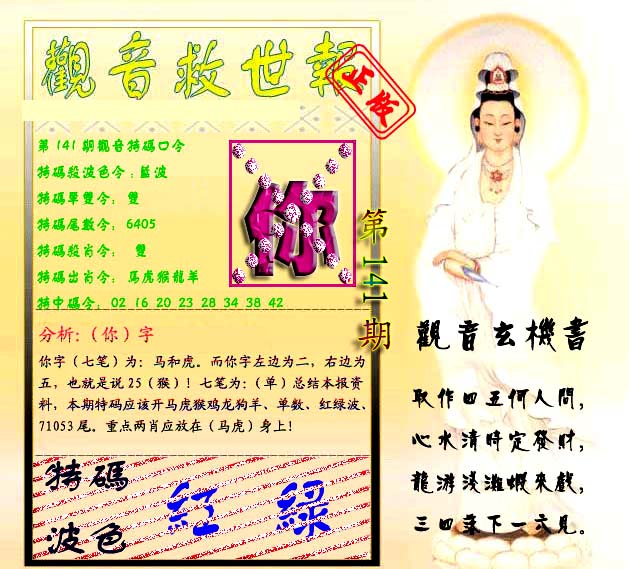 觀音救世報
正版
第141期觀音特碼口令
特碼殺波色令：藍波
特碼單雙令： 雙
特碼尾數令： 6405
特碼殺肖令： 雙
特碼出肖令： 馬虎猴龍羊
特中碼令： 02 16 20 23 28 34 38 42
你
第141期
分析:（你）字
你字（七笔）为：马和虎。而你字左边为二，右边为
五，也就是说25（猴）！七笔为：（单）总结本报资
料，本期特码应该开马虎猴鸡龙狗羊、单数、红绿波、
71053尾。重点两肖应放在（马虎）身上！
特碼
波色
紅 綠
觀音玄機書
取作四五何人問，
心水清時定發財，
龍游淺灘蝦來戲，
三四落下一六見。